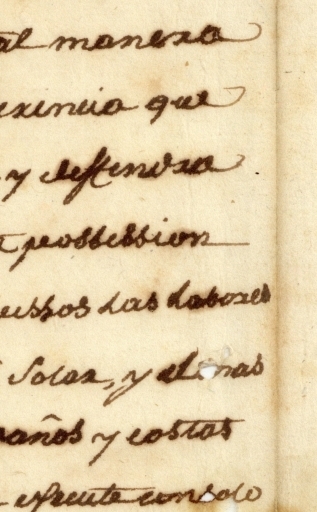 al manera
erencia que
y defendera
possession
essos las labores
Solar, y el mas
años y costas
execute con solo